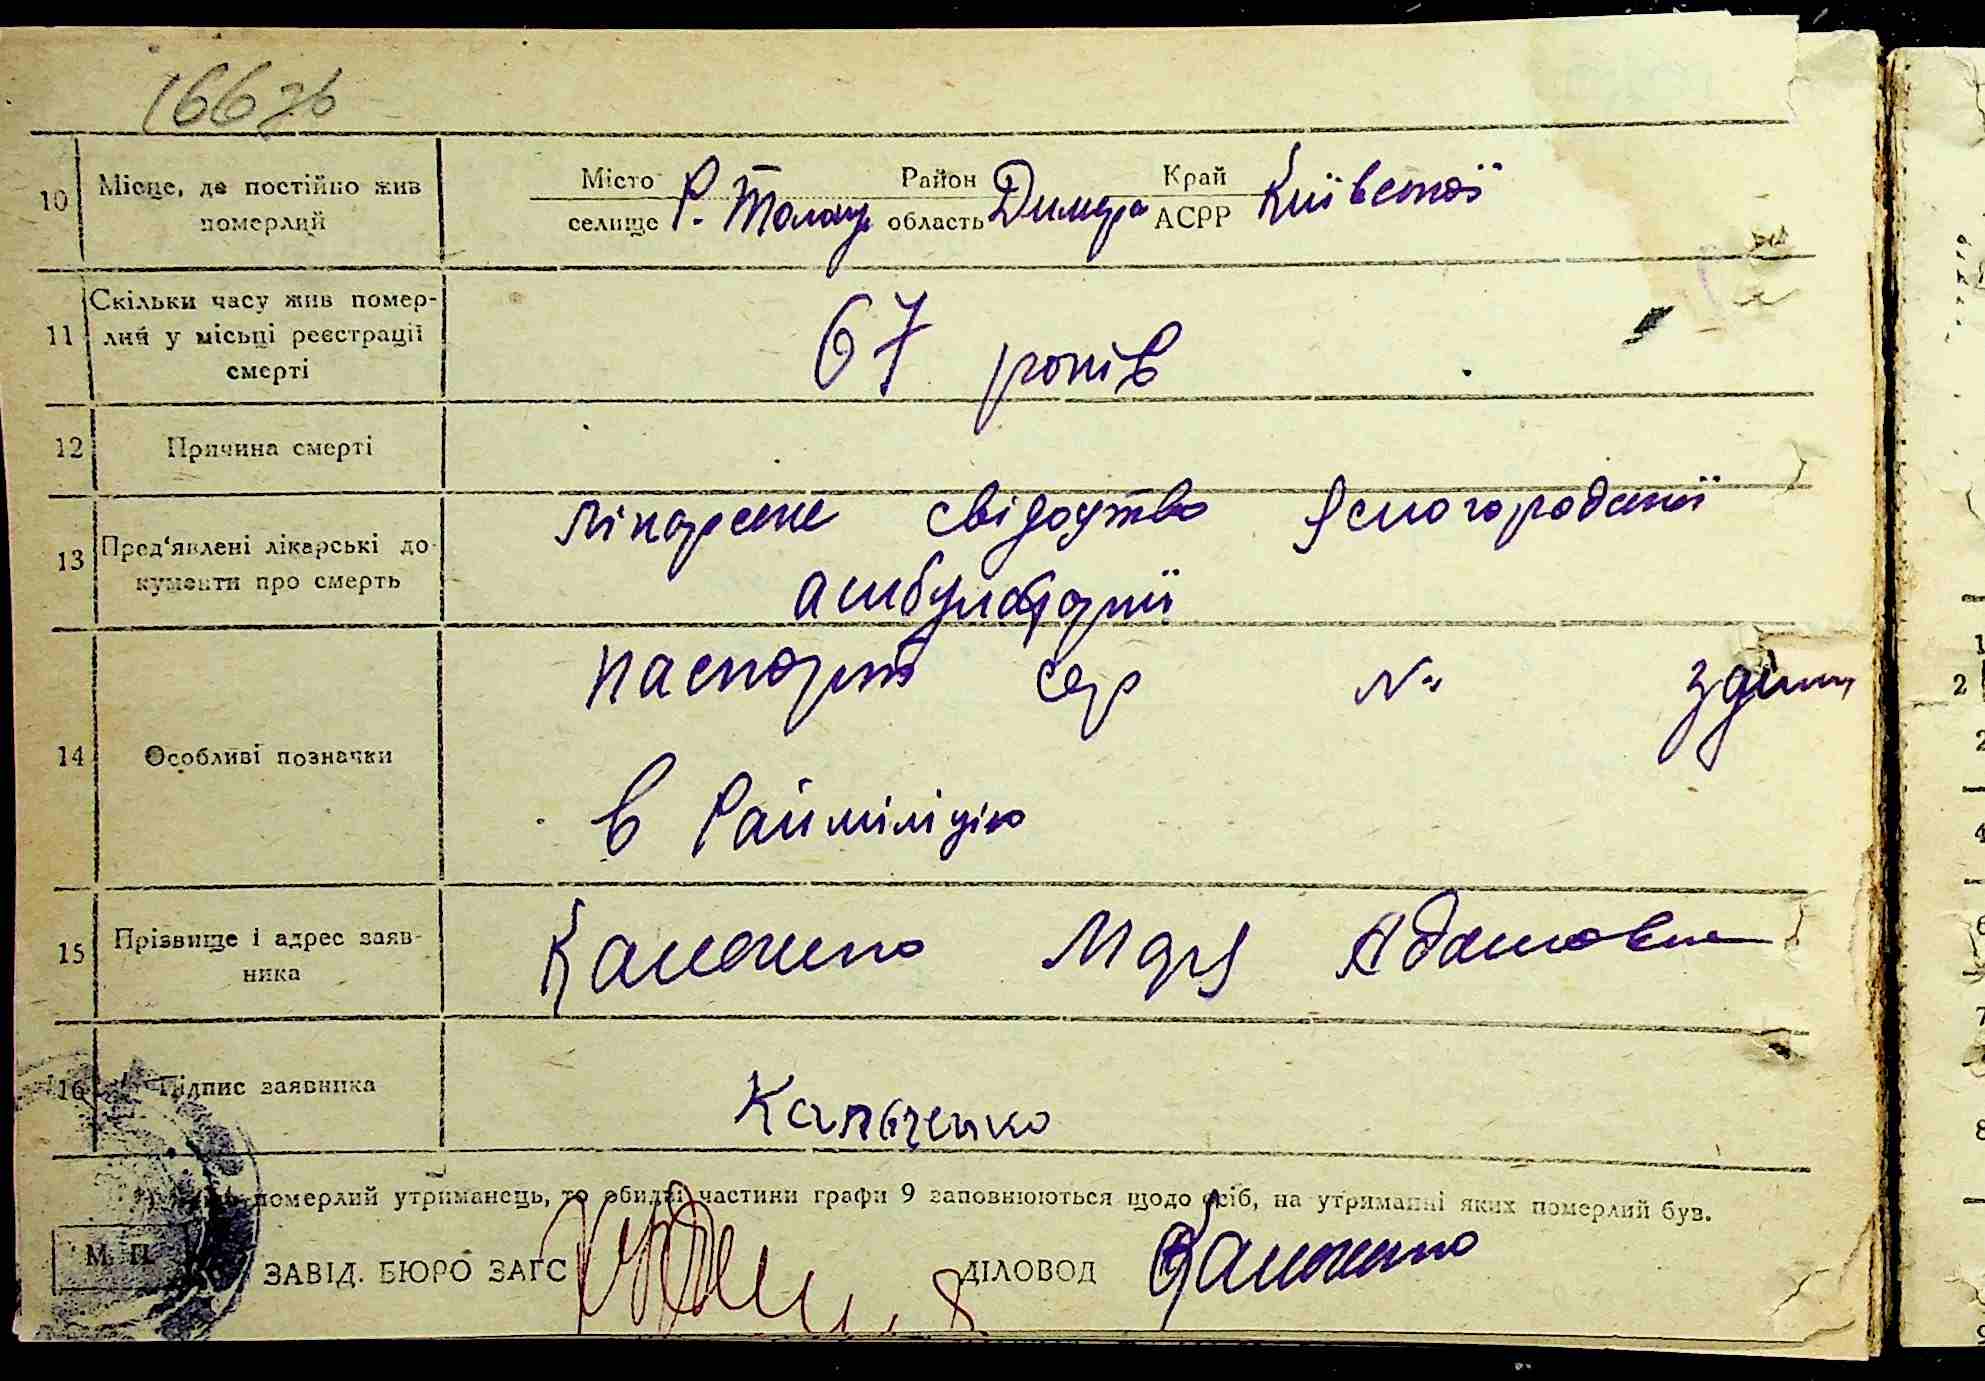 166зв
10 Місце, де постійно жив померлий
Місто селище Р. Толоку Район область Димерс Край АСРР Київської
11 Скільки часу жив померлий у місьці реєстрації смерті
67 років
12 Причина смерті
13 Пред'явлені лікарські документи про смерть
лікарське свідоцтво Ясногородської
амбулаторії
14 Особливі позначки
паспорт сер № здани
в Райміліцію
15 Прізвище і адрес заявника
Мария Адамовна
16 Підпис заявника
Кальченко
померлий утриманець, то обидві частини графи 9 заповнюються щодо осіб, на утриманні яких померлий був.
М. П.
ЗАВІД. БЮРО ЗАГС ДІЛОВОД